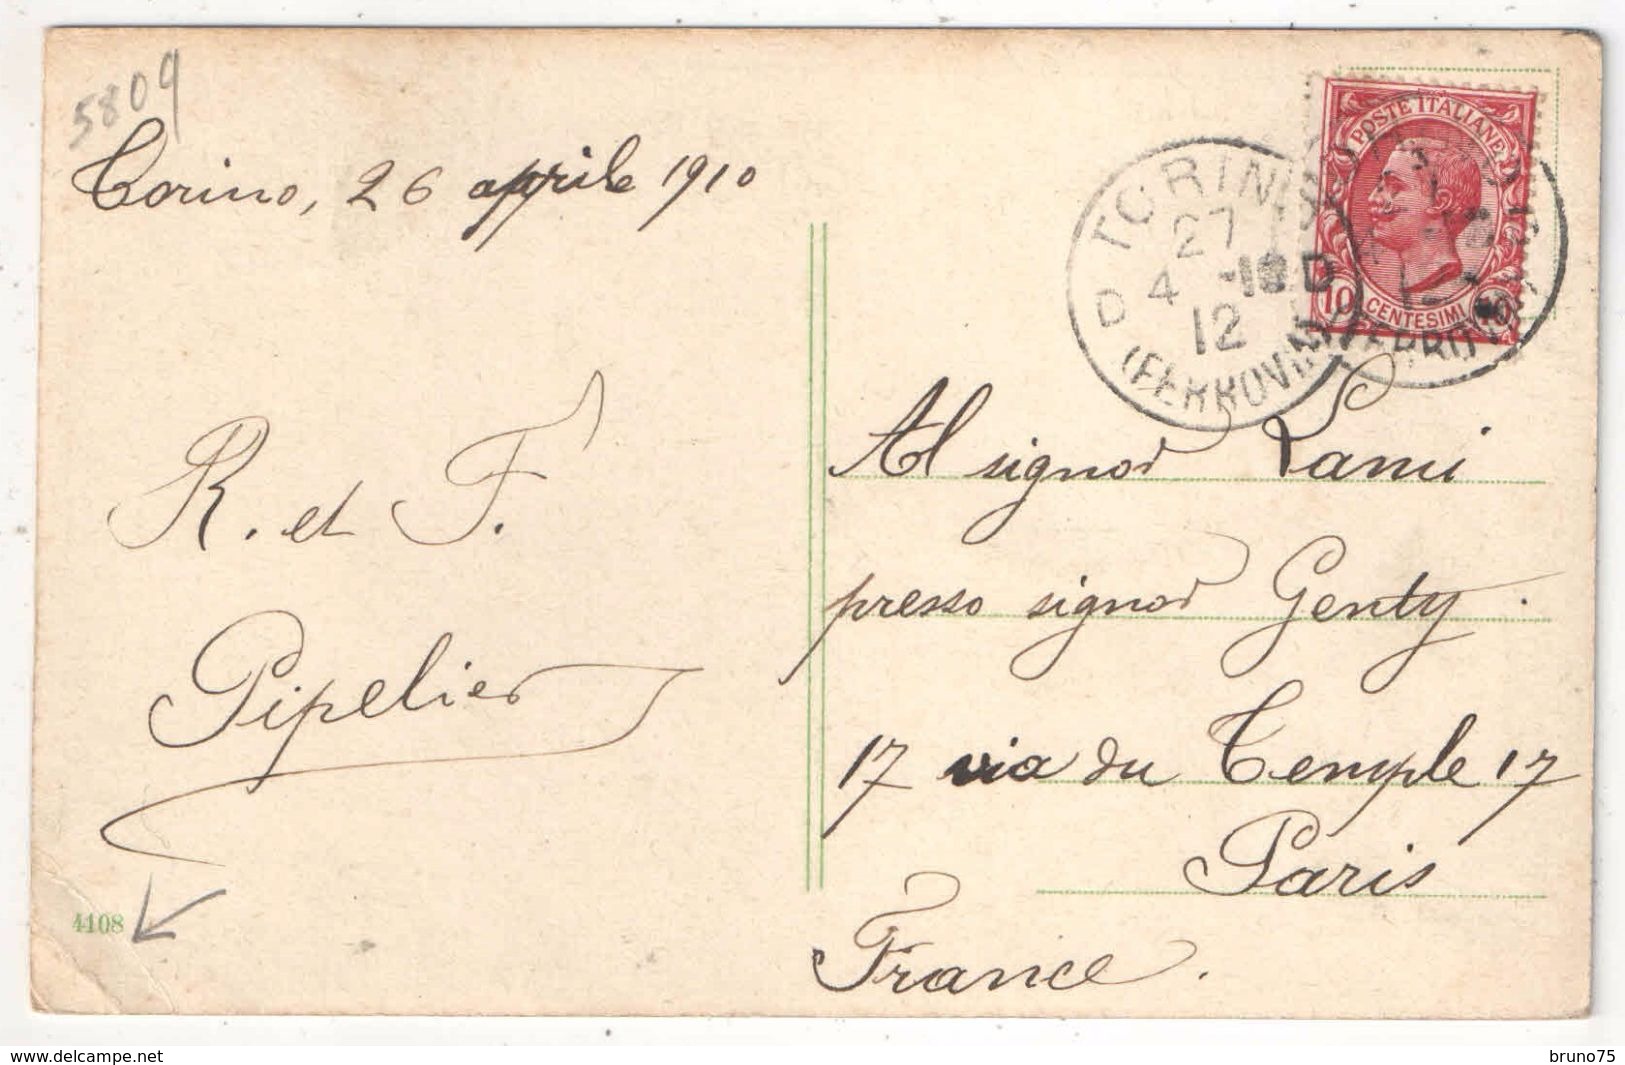 5809
Torino, 26 aprile 1910
R. et F.
Pipelier
4108
POSTE ITALIANE
10 CENTESIMI 10
TORINO
27
4 -10
D D
12
(FERROVIA)
Al signor Lami
presso signor Genty.
17 via du Temple 17
Paris
France.
www.delcampe.net
bruno75